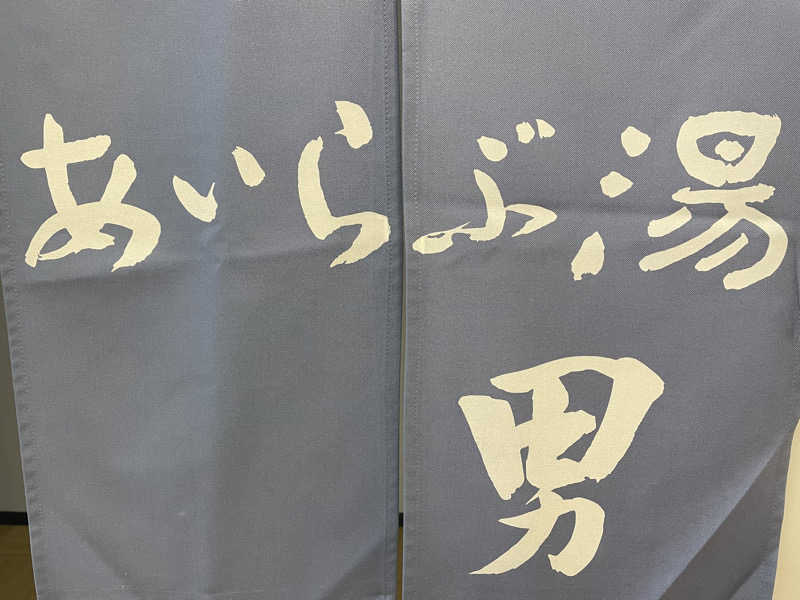 あいらぶ湯
男